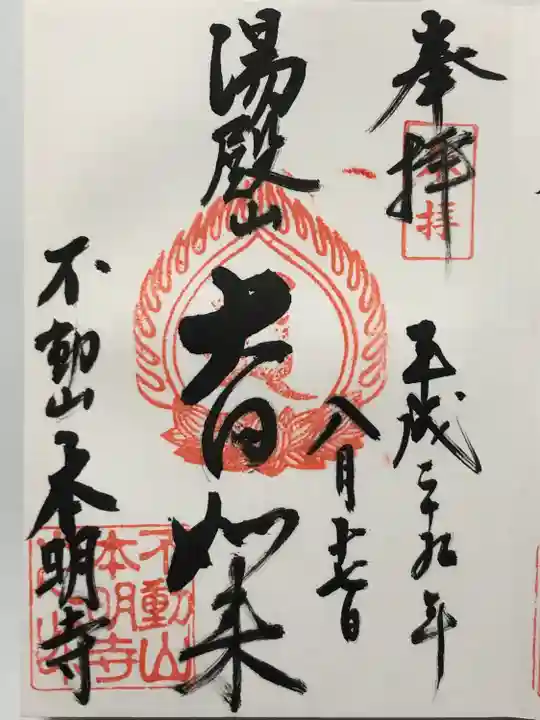 奉拝
平成二十九年
八月十七日
湯殿山
大日如来
不動山本明寺
奉拝
不動山
本明寺